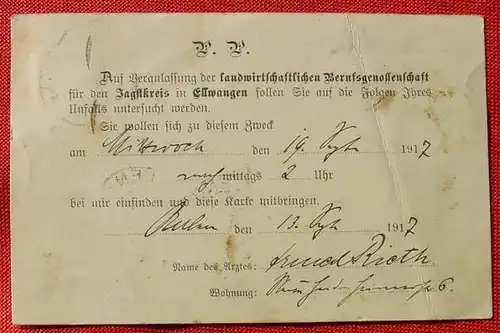 P. P.
Auf Veranlassung der landwirtschaftlichen Berufsgenossenschaft
für den Jagstkreis in Ellwangen sollen Sie auf die Folgen Ihres
Unfalls untersucht werden.
Sie wollen sich zu diesem Zweck
am Mittwoch den 19. Sept 1917
nachmittags 2 Uhr
bei mir einfinden und diese Karte mitbringen.
Aalen den 13. Sept 1917
Name des Arztes: Rieth
Wohnung: 6.